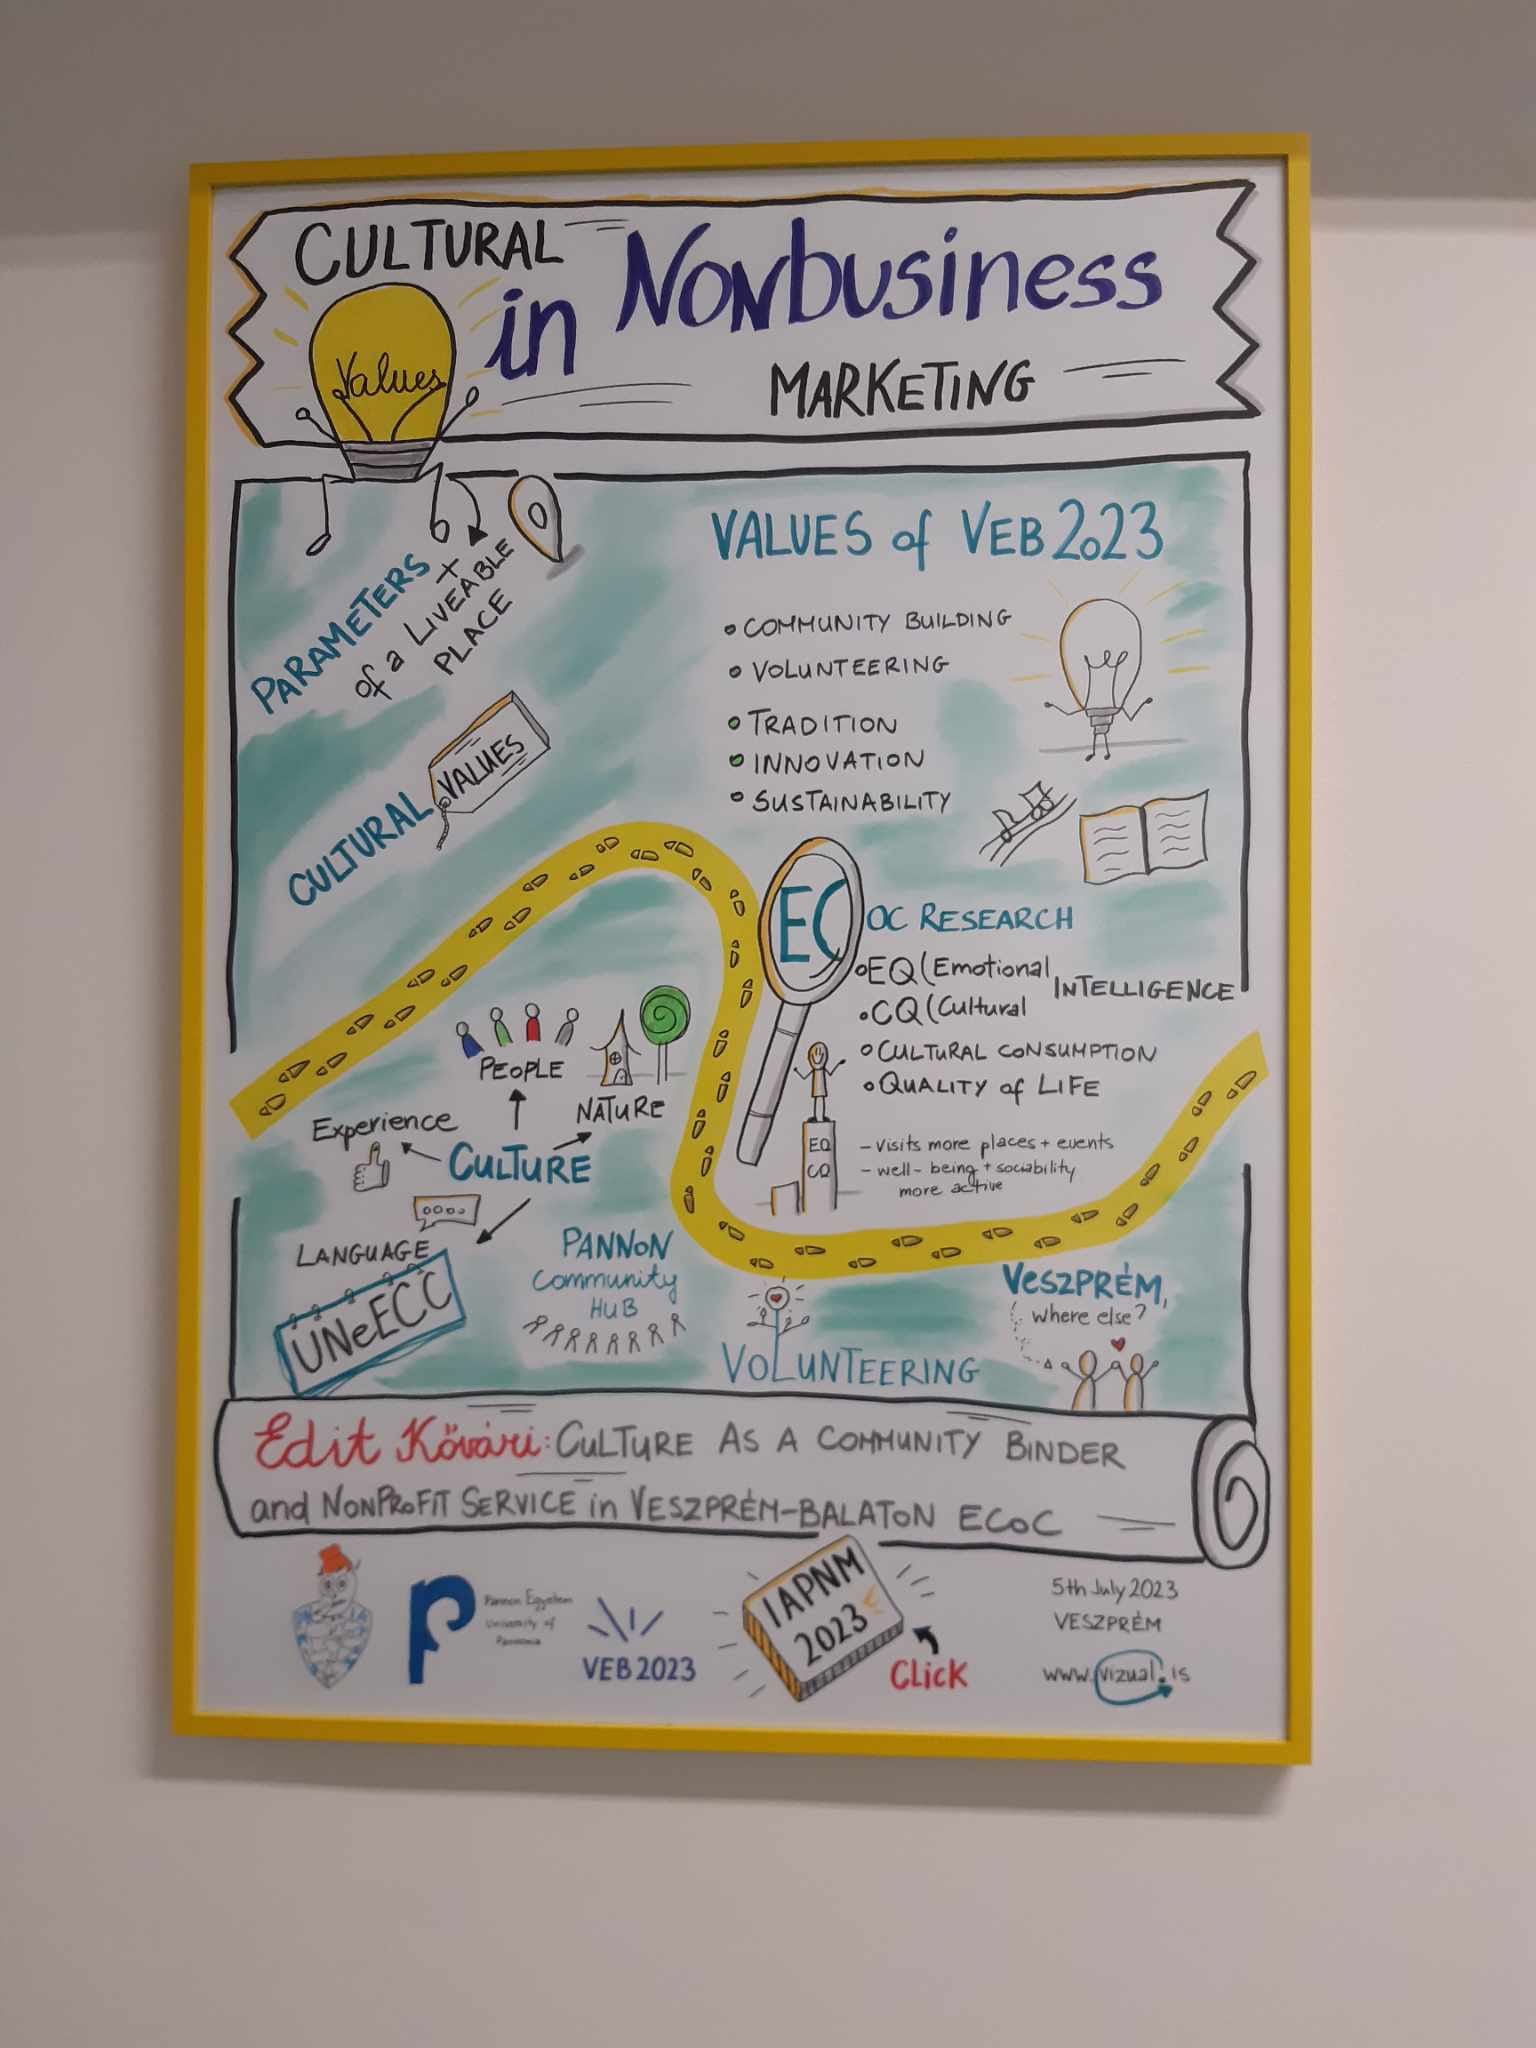 CULTURAL
Values
in Nonbusiness
MARKETING
PARAMETERS +
of a LIVEABLE
PLACE
CULTURAL VALUES
VALUES of VEB 2023
• COMMUNITY BUILDING
• VOLUNTEERING
• TRADITION
• INNOVATION
• SUSTAINABILITY
ECOC RESEARCH
• EQ (Emotional
INTELLIGENCE
• CQ (Cultural
• CULTURAL CONSUMPTION
• QUALITY of LIFE
EQ
CQ
- visits more places + events
- well-being + sociability
more active
PEOPLE
NATURE
Experience
CULTURE
LANGUAGE
UNeECC
PANNON
Community
HUB
VOLUNTEERING
VESZPRÉM,
where else?
Edit Kővári: CULTURE AS A COMMUNITY BINDER
and NONPROFIT SERVICE in VESZPRÉM-BALATON ECOC
Pannon Egyetem
University of
Pannonia
VEB 2023
IAPNM
2023
CLICK
5th July 2023
VESZPRÉM
www.vizual.is